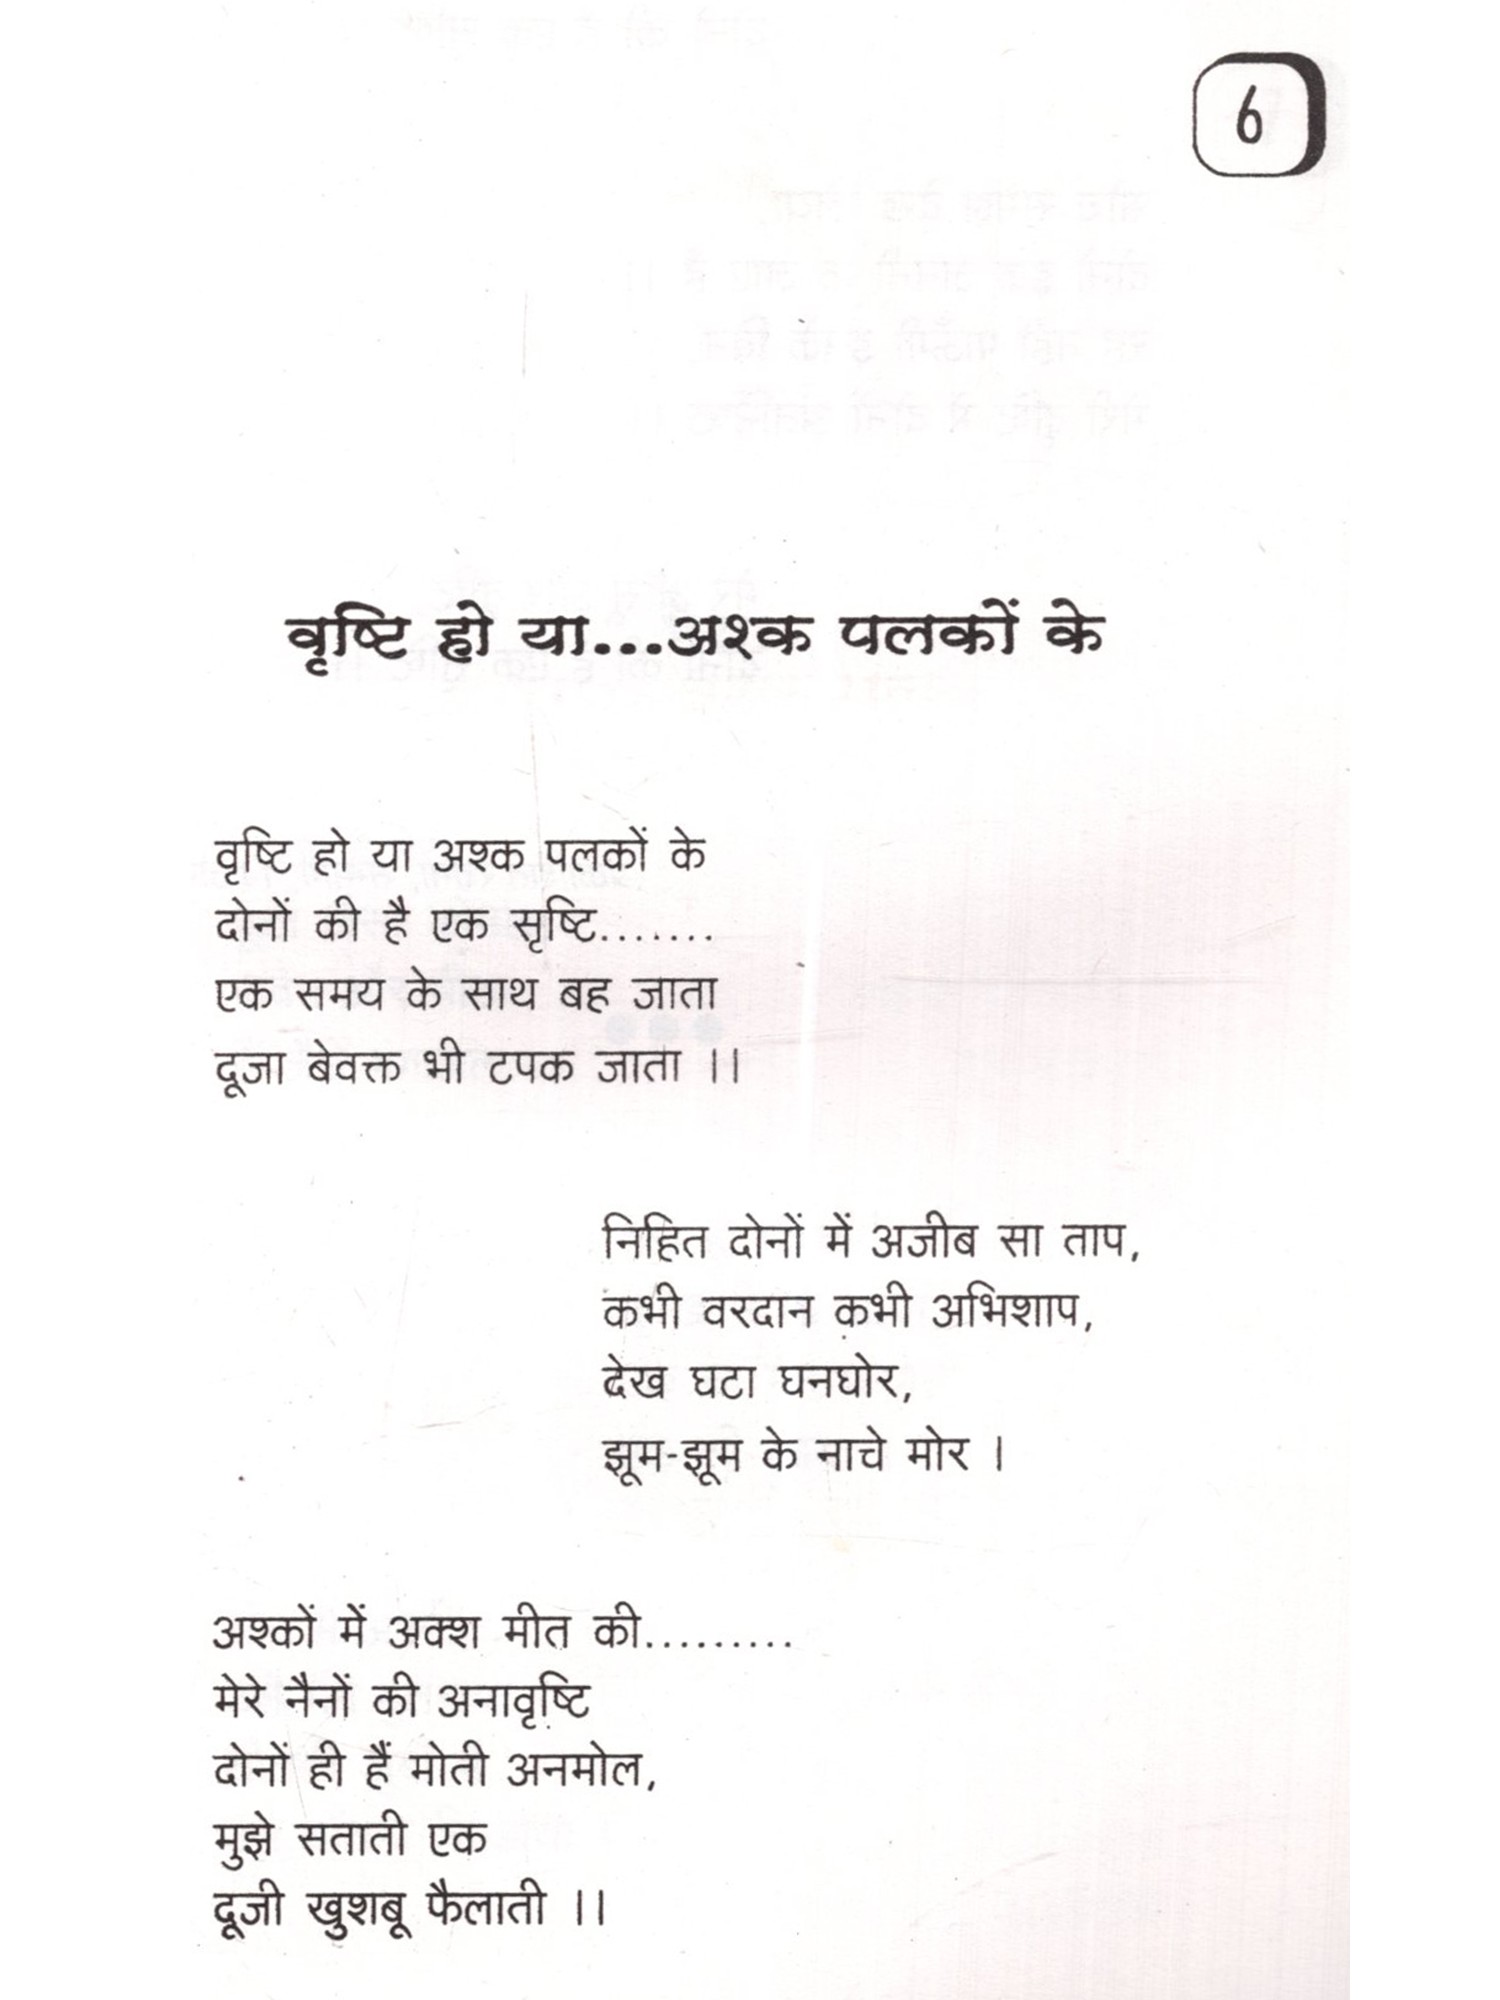 6
वृष्टि हो या...अश्क पलकों के
वृष्टि हो या अश्क पलकों के
दोनों की है एक सृष्टि.......
एक समय के साथ बह जाता
दूजा बेवक्त भी टपक जाता ।।
निहित दोनों में अजीब सा ताप,
कभी वरदान कभी अभिशाप,
देख घटा घनघोर,
झूम-झूम के नाचे मोर ।
अश्कों में अक्श मीत की.........
मेरे नैनों की अनावृष्टि
दोनों ही हैं मोती अनमोल,
मुझे सताती एक
दूजी खुशबू फैलाती ।।